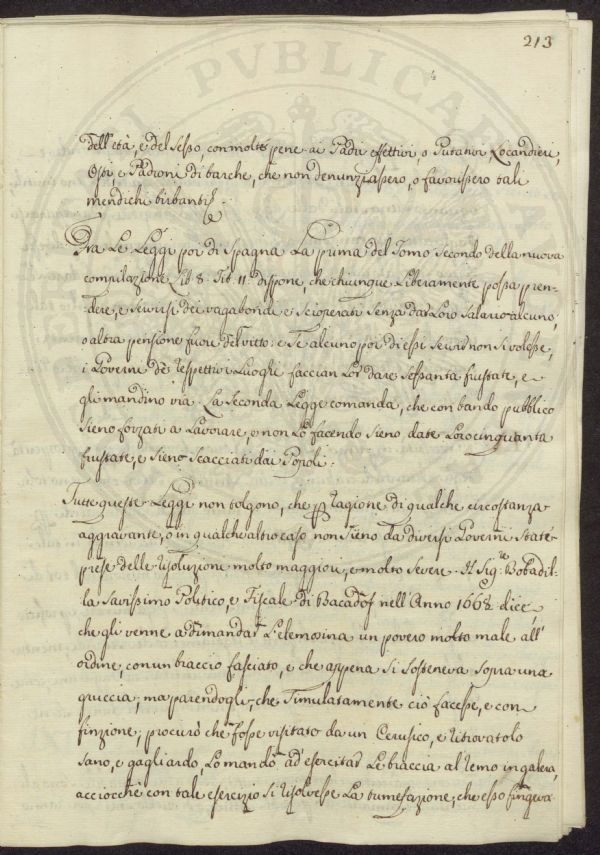 213
dell'età, e del sesso, con molte pene ai Padri effettivi, o Putativi Locandieri,
Osti, e Padroni di barche, che non denunziassero, o favorissero tali
mendichi birbanti.
Tra Le Leggi poi di Spagna La prima del Tomo Secondo della nuova
compilazione Lib. 8. Tit. 11. dispone, che chiunque Liberamente possa pren-
dere, e servirsi dei vagabondi e scioperati senza dar Loro Salario alcuno,
o altra pensione fuore del vitto: e Se alcuno poi di essi servir non si volesse,
i Governi dè respettivi Luoghi faccian Lor dare Sessanta frustate, e
gli mandino via. La Seconda Legge comanda, che con bando pubblico
sieno forzati a Lavorare, e non Lo facendo sieno date Loro cinquanta
frustate, e sieno Scacciati dai Popoli.
Tutte queste Leggi non tolgono, che p ragione di qualche circostanza
aggravante, o in qualch'altro caso non Sieno da diversi Governi State
prese delle risoluzione molto maggiori, e molto Severe. Il Sig.re Bobadil-
la Savissimo Politico, e Fiscale di nell'Anno 1668. dice
che gli venne a dimandar L'elemosina un povero molto male all'
ordine, con un braccio fasciato, e che appena Si Sosteneva Sopra una
gruccia; ma parendogli, che Simulatamente ciò facesse, e con
finzione, procurò che fosse visitato da un Cerusico, e ritrovatolo
Sano, e gagliardo, Lo mandò ad esercitar Le braccia al remo in galera,
acciocchè con tale esercizio Si risolvesse La tumefazione, che esso fingeva